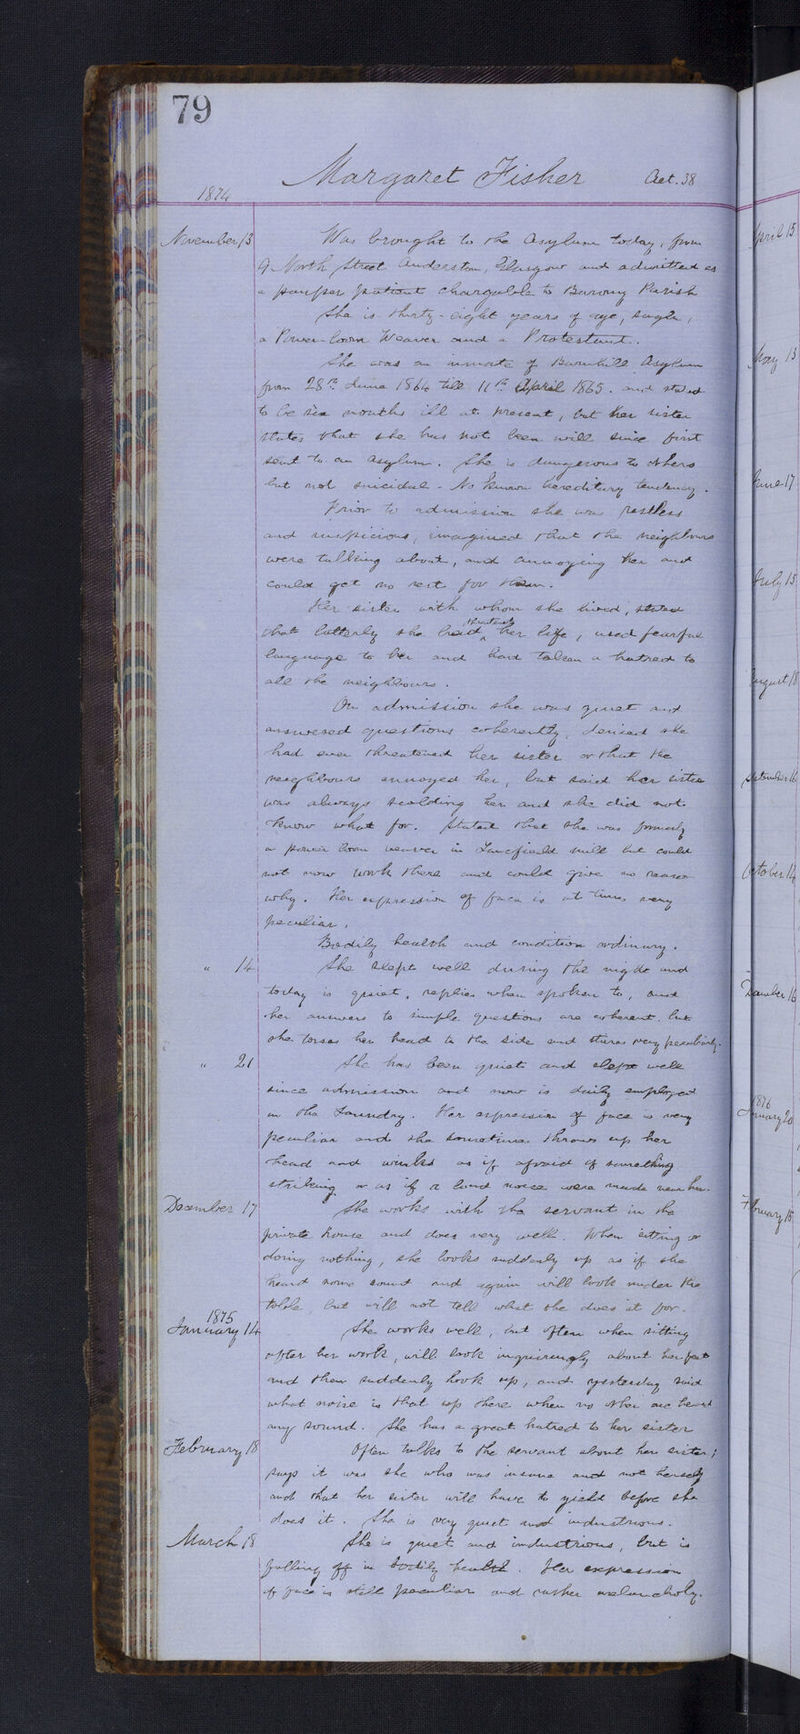 79
Margaret Fisher Aet. 38
1874
November 13 Was brought to the Asylum today, from
9 North Street Anderston, Glasgow and admitted as
a pauper patient chargable to Barony Parish
She is thirty-eight years of age, single,
a Power-loom Weaver and a Protestant.
She was an inmate of Barnhill Asylum
from 28th June 1864 till 11th April 1865. and stated
to be six months ill at present, but her sister
states that she has not been well since first
sent to an asylum. She is dangerous to others
but not suicidal - No known hereditary tendency.
Prior to admission she was restless
and suspicious, imagined that the neighbours
were talking about, and annoying her and
could get no rest for them.
Her sister with whom she lived, stated
that latterly she had threatened her life, used fearful
language to her and had taken a hatred to
all the neighbours.
On admission she was quiet and
answered questions coherently, denied she
had ever threatened her sister or that the
neighbours annoyed her, but said her sister
was always scolding her and she did not
know what for. Stated that she was formerly
a power loom weaver in Lancefield mill but could
not now work there and could give no reason
why. Her expression of face is at times very
peculiar.
Bodily health and condition ordinary.
" 14 She slept well during the night and
today is quiet, replies when spoken to, and
her answers to simple questions are coherent. but
she tosses her head to the side and stares very peculiarly.
" 21 She has been quiet and slept well
since admission and now is daily employed
in the Laundry. Her expression of face is very
peculiar and she sometimes throws up her
head and winks as if afraid of something
striking or as if a loud noise were made near her.
December 17 She works with the servant in the
private house and does very well. When sitting or
doing nothing, she looks suddenly up as if she
heard some sound and again will look under the
table, but will not tell what she does it for.
1875
January 14 She works well, but often when sitting
after her work, will look inquiringly about her feet
and then suddenly look up, and yesterday said
what noise is that up there when no other one heard
any sound. She has a great hatred to her sister
February 18 Often talks to the servant about her sister;
says it was she who was insane and not herself
and that her sister will have to yield before she
does it. She is very quiet and industrious.
March 18 She is quiet and industrious, but is
falling off in bodily health. Her expression
of face is still peculiar and rather melancholy.
April 15
May 13
June 17
July 15
August 18
September 16
October 14
December 16
1876
January 20
February 15